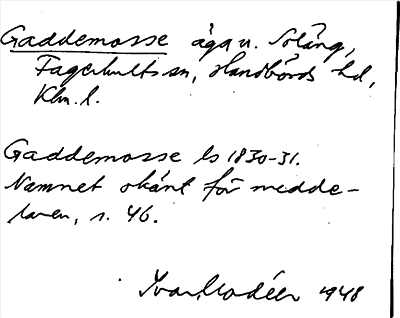 Gaddemosse äga u. Soläng,
Fagerhults sn, Handbörds hd,
Klm. l.
Gaddemosse ls 1830-31.
Namnet okänt för medde-
laren, s. 46.
Ivar Modéer 1948